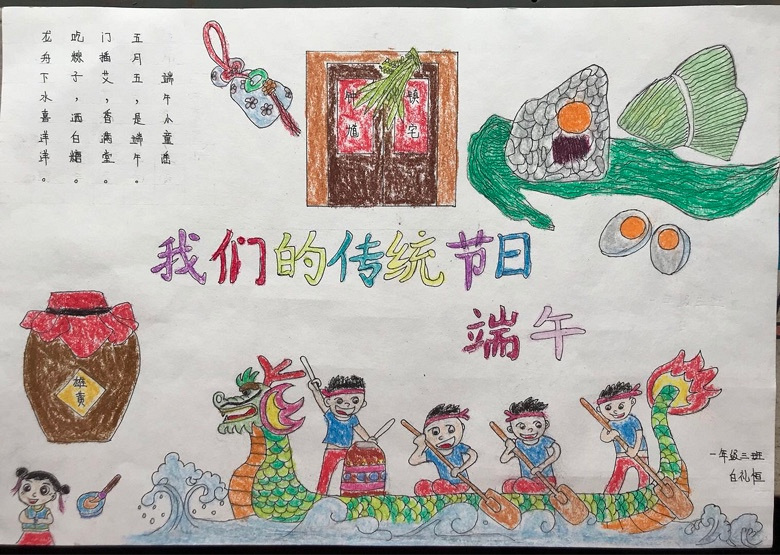 端午小童谣
五月五，是端午。
门插艾，香满堂。
吃粽子，洒白糖。
龙舟下水喜洋洋。
镇宅
我们的传统节日
端午
雄黄
一年级三班
白礼恒